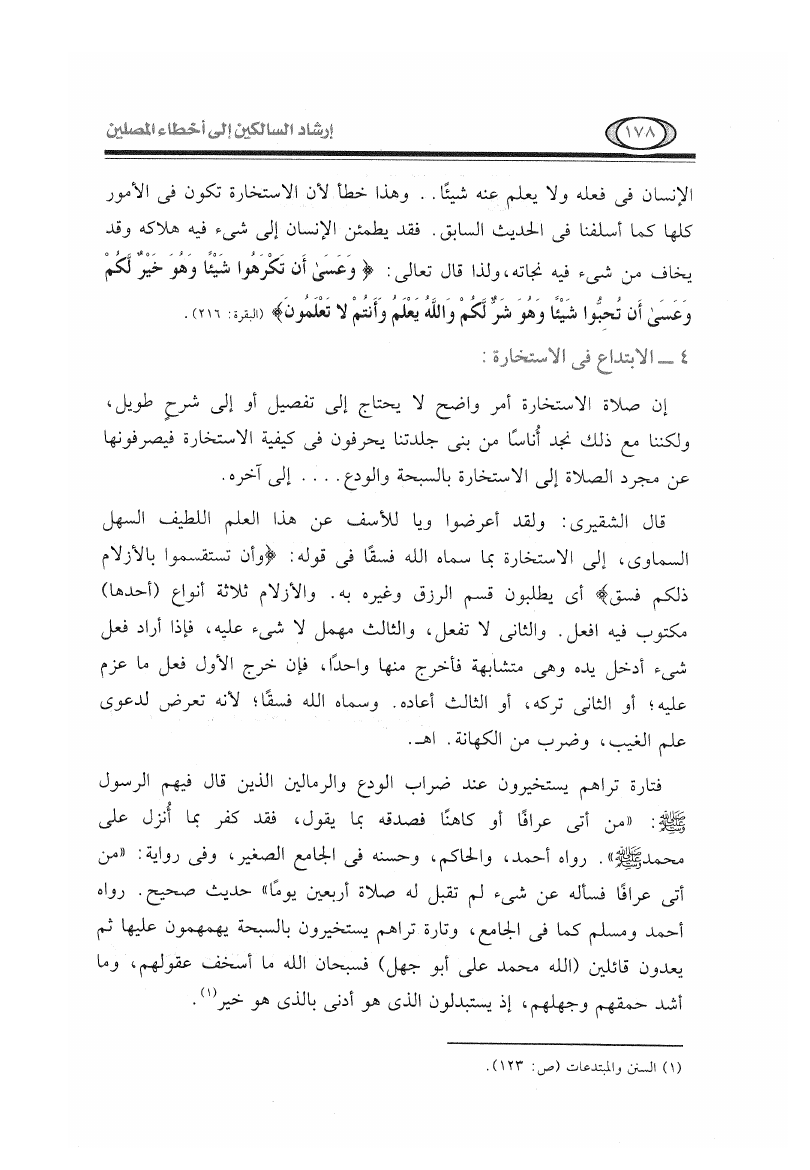 ١٧٨
إرشاد السالكين إلى أخطاء المصلين
الإنسان فى فعله ولا يعلم عنه شيئًا.. وهذا خطأ لأن الاستخارة تكون فى الأمور
كلها كما أسلفنا فى الحديث السابق. فقد يطمئن الإنسان إلى شىء فيه هلاكه وقد
يخاف من شىء فيه نجاته، ولذا قال تعالى: ﴿ وَعَسَىٰ أَن تَكْرَهُوا شَيْئًا وَهُوَ خَيْرٌ لَّكُمْ
وَعَسَىٰ أَن تُحِبُّوا شَيْئًا وَهُوَ شَرٌّ لَّكُمْ وَاللَّهُ يَعْلَمُ وَأَنتُمْ لا تَعْلَمُونَ﴾ (البقرة: ٢١٦).
٤ ــ الابتداع فى الاستخارة :
إن صلاة الاستخارة أمر واضح لا يحتاج إلى تفصيل أو إلى شرحٍ طويل،
ولكننا مع ذلك نجد أُناسًا من بنى جلدتنا يحرفون فى كيفية الاستخارة فيصرفونها
عن مجرد الصلاة إلى الاستخارة بالسبحة والودع.... إلى آخره.
قال الشقيرى: ولقد أعرضوا ويا للأسف عن هذا العلم اللطيف السهل
السماوى، إلى الاستخارة بما سماه الله فسقًا فى قوله: ﴿وأن تستقسموا بالأزلام
ذلكم فسق﴾ أى يطلبون قسم الرزق وغيره به. والأزلام ثلاثة أنواع (أحدها)
مكتوب فيه افعل. والثانى لا تفعل، والثالث مهمل لا شىء عليه، فإذا أراد فعل
شىء أدخل يده وهى متشابهة فأخرج منها واحدًا، فإن خرج الأول فعل ما عزم
عليه؛ أو الثانى تركه، أو الثالث أعاده. وسماه الله فسقًا؛ لأنه تعرض لدعوى
علم الغيب، وضرب من الكهانة. اهـ.
فتارة تراهم يستخيرون عند ضراب الودع والرمالين الذين قال فيهم الرسول
ﷺ: «من أتى عرافًا أو كاهنًا فصدقه بما يقول، فقد كفر بما أُنزل على
محمدﷺ». رواه أحمد، والحاكم، وحسنه فى الجامع الصغير، وفى رواية: «من
أتى عرافًا فسأله عن شىء لم تقبل له صلاة أربعين يومًا» حديث صحيح. رواه
أحمد ومسلم كما فى الجامع، وتارة تراهم يستخيرون بالسبحة يهمهمون عليها ثم
يعدون قائلين (الله محمد على أبو جهل) فسبحان الله ما أسخف عقولهم، وما
أشد حمقهم وجهلهم، إذ يستبدلون الذى هو أدنى بالذى هو خير(١).
(١) السنن والمبتدعات (ص: ١٢٣).